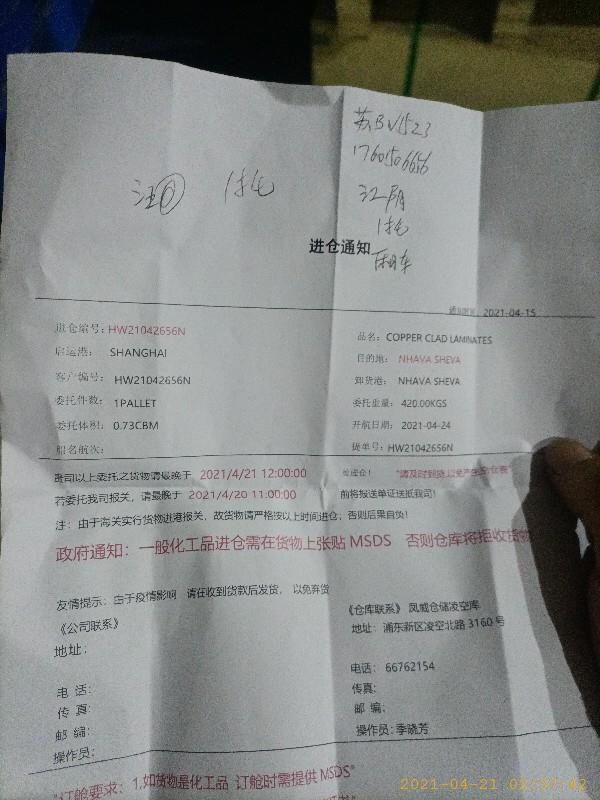 苏BV1523
17601506656
江阴
进仓通知
2021-04-15
进仓编号：HW21042656N
品名：COPPER CLAD LAMINATES
启运港： SHANGHAI
目的地： NHAVA SHEVA
客户编号： HW21042656N
卸货港： NHAVA SHEVA
委托件数：1PALLET
委托重量：420.00KGS
委托体积：0.73CBM
开航日期：2021-04-24
船名航次：
提单号：HW21042656N
贵司以上委托之货物请最晚于 2021/4/21 12:00:00
若委托我司报关，请最晚于 2021/4/20 11:00:00 前将报送单证送抵我司！
注：由于海关实行货物进港报关，故货物请严格按以上时间进仓，否则后果自负！
政府通知：一般化工品进仓需在货物上张贴 MSDS 否则仓库将拒收货物
友情提示：由于疫情影响 请在收到货款后发货， 以免弃货
《公司联系》
《仓库联系》 凤威仓储凌空库
地址：
地址：浦东新区凌空北路 3160 号
电话：
电话： 66762154
传真：
传真：
邮编：
邮编：
操作员：
操作员：李晓芳
"订舱要求：1,如货物是化工品 订舱时需提供 MSDS"
2021-04-21 02:37:42